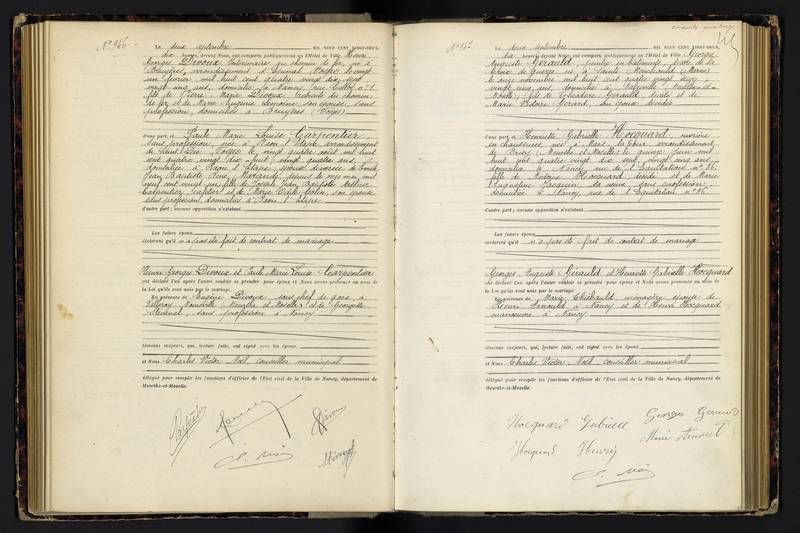 N° 946.
Le deux septembre MIL NEUF CENT VINGT-DEUX,
dix heures, devant Nous, ont comparu publiquement en l'Hôtel de Ville Henri
Georges Divoux, au chemin de fer, né à
Bruyères, arrondissement d'Epinal Vosges le vingt
un février mil huit cent quatre vingt dix sept
vingt cinq ans, domicilié à Nancy, rue n° 1
fils de Pierre Divoux, retraité du chemin
de fer et de Marie Eugénie son épouse, sans
profession, domiciliés à Bruyères (Vosges)
d'une part, et Paule Marie Louise Carpentier,
sans profession, née à Raon l'Etape arrondissement
de Saint Dié Vosges le vingt quatre août mil huit
cent quatre vingt dix huit, vingt quatre ans,
domiciliée à Raon l'Etape, épouse divorcée de
Jean Baptiste depuis le onze mai mil
neuf cent vingt un, fille de Joseph Jean Baptiste
Carpentier, et de Marie son épouse
sans profession, domiciliés à Raon l'Etape
d'autre part ; aucune opposition n'existant
Les futurs époux
déclarent qu'il n'a pas été fait de contrat de mariage
Henri Georges Divoux et Paule Marie Louise Carpentier
ont déclaré l'un après l'autre vouloir se prendre pour époux et Nous avons prononcé au nom de
la Loi qu'ils sont unis par le mariage.
En présence de Eugène Divoux, sous chef de gare à
Meurthe et Moselle, et de Georgette
sans profession à Nancy
témoins majeurs, qui, lecture faite, ont signé avec les époux
et Nous Charles Victor Noël, conseiller municipal
délégué pour remplir les fonctions d'officier de l'Etat civil de la Ville de Nancy, département de
Meurthe-et-Moselle.
Le deux septembre MIL NEUF CENT VINGT-DEUX,
dix heures, devant Nous, ont comparu publiquement en l'Hôtel de Ville Georges
Auguste Gérauld, peintre en bâtiments, décoré de la
Croix de guerre né à Sainte Menehould (Marne)
le onze novembre mil huit cent quatre vingt seize
vingt cinq ans, domicilié à Meurthe et
Moselle, fils de Théodore Gérauld, décédé et de
Marie Victoire Gérard, son épouse décédés
d'une part, et Henriette Gabrielle Hocquard, ouvrière
en chaussures, née à Mars la Tour arrondissement
de Briey (Meurthe et Moselle) le quinze juin mil
huit cent quatre vingt dix sept, vingt cinq ans,
domiciliée à Nancy rue de l'Equitation n° 26,
fille de Antoine Hocquard décédé et de Marie
Augustine Jacquin sa veuve, sans profession,
domiciliée à Nancy, rue de l'Equitation n° 26.
d'autre part ; aucune opposition n'existant
Les futurs époux
déclarent qu'il n'a pas été fait de contrat de mariage
Georges Auguste Gérauld et Henriette Gabrielle Hocquard
ont déclaré l'un après l'autre vouloir se prendre pour époux et Nous avons prononcé au nom de
la Loi qu'ils sont unis par le mariage.
En présence de Marie Thiébauld, ménagère épouse de
Henri Arnould, à Nancy et de Henri Hocquard
manœuvre à Nancy
témoins majeurs, qui, lecture faite, ont signé avec les époux
et Nous Charles Victor Noël conseiller municipal
délégué pour remplir les fonctions d'officier de l'Etat civil de la Ville de Nancy, département de
Meurthe-et-Moselle.
Hocquard Gabrielle Georges Gerauld
Hocquard Henri Marie